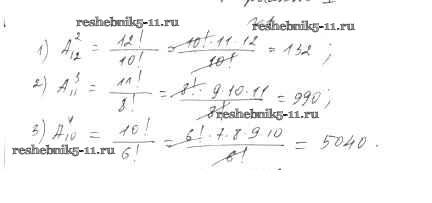 reshebnik5-11.ru
reshebnik5-11.ru
1) A₁₂² = 12!/10! = 10!·11·12/10! = 132;
2) A₁₁³ = 11!/8! = 8!·9·10·11/8! = 990;
reshebnik5-11.ru
3) A₁₀⁴ = 10!/6! = 6!·7·8·9·10/6! = 5040.
reshebnik5-11.ru